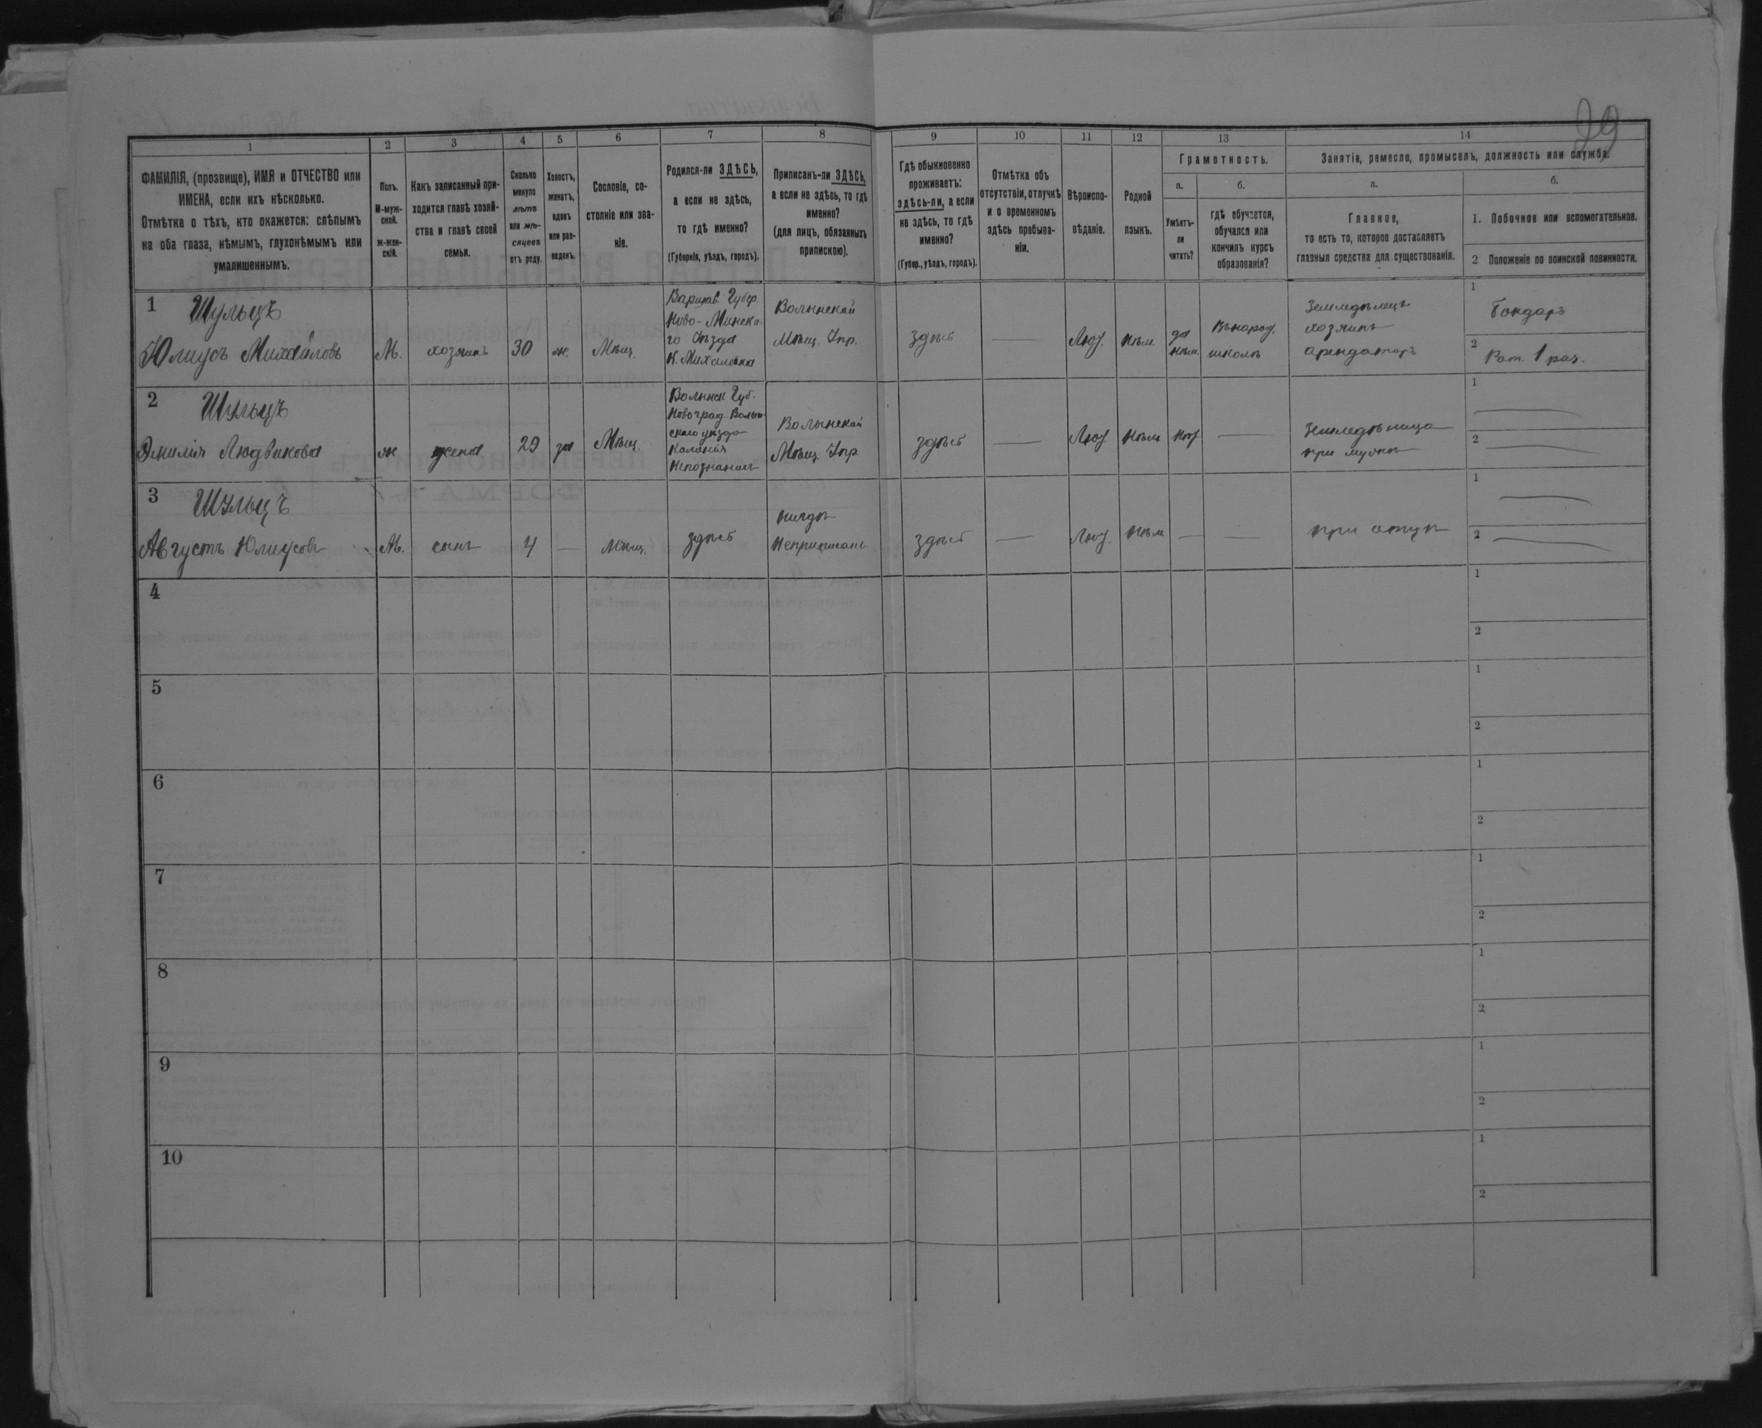 29
1 2 3 4 5 6 7 8 9 10 11 12 13 14
ФАМИЛІЯ, (прозвище), ИМЯ и ОТЧЕСТВО или
ИМЕНА, если ихъ нѣсколько.
Отмѣтка о тѣхъ, кто окажется: слѣпымъ
на оба глаза, нѣмымъ, глухонѣмымъ или
умалишеннымъ.
Полъ.
М-муж-
ской.
ж-жен-
скій.
Какъ записанный при-
ходится главѣ хозяй-
ства и главѣ своей
семьи.
Сколько
минуло
лѣтъ
или мѣ-
сяцевъ
отъ роду.
Холостъ,
женатъ,
вдовъ
или раз-
веденъ.
Сословіе, со-
стояніе или зва-
ніе.
Родился-ли ЗДѢСЬ,
а если не здѣсь,
то гдѣ именно?
(Губернія, уѣздъ, городъ).
Приписанъ-ли ЗДѢСЬ,
а если не здѣсь, то гдѣ
именно?
(для лицъ, обязанныхъ
припискою).
Гдѣ обыкновенно
проживаетъ:
здѣсь-ли, а если
не здѣсь, то гдѣ
именно?
(Губер., уѣздъ, городъ).
Отмѣтка объ
отсутствіи, отлучкѣ
и о временномъ
здѣсь пребыва-
ніи.
Вѣроиспо-
вѣданіе.
Родной
языкъ.
Грамотность.
а.
Умѣетъ-
ли
читать?
б.
гдѣ обучается,
обучался или
кончилъ курсъ
образованія?
Занятіе, ремесло, промыселъ, должность или служба.
а.
Главное,
то есть то, которое доставляетъ
главныя средства для существованія.
б.
1. Побочное или вспомогательное.
2 Положеніе по воинской повинности.
1 Шульцъ
Юлиусъ Михайловъ
М.
хозяинъ
30
ж.
Мѣщ.
Варшав. Губер.
Ново-Минска-
го Уѣзда
К. Михаловка
Волынской
Мѣщ. Упр.
здѣсь
—
Лют.
нѣм.
да
нѣм.
Въ народ.
школѣ
Земледѣлецъ
хозяинъ
арендаторъ
1 Бондарь
2 Рат. 1 раз.
2 Шульцъ
Эмилія Людвикова
ж
жена
29
за
Мѣщ.
Волынск Губ.
Новоград-Волын-
скаго уѣзда
Колонія
Волынской
Мѣщ. Упр
здѣсь
—
Лют
нѣм
нѣт
—
Земледѣлица
при мужѣ
1 —
2 —
3 Шульцъ
Августъ Юлиусовъ
М.
сынъ
4
—
Мѣщ.
здѣсь
нигдѣ
Неприписанъ
здѣсь
—
Лют.
нѣм
—
—
при отцѣ
1 —
2 —
4
1
2
5
1
2
6
1
2
7
1
2
8
1
2
9
1
2
10
1
2